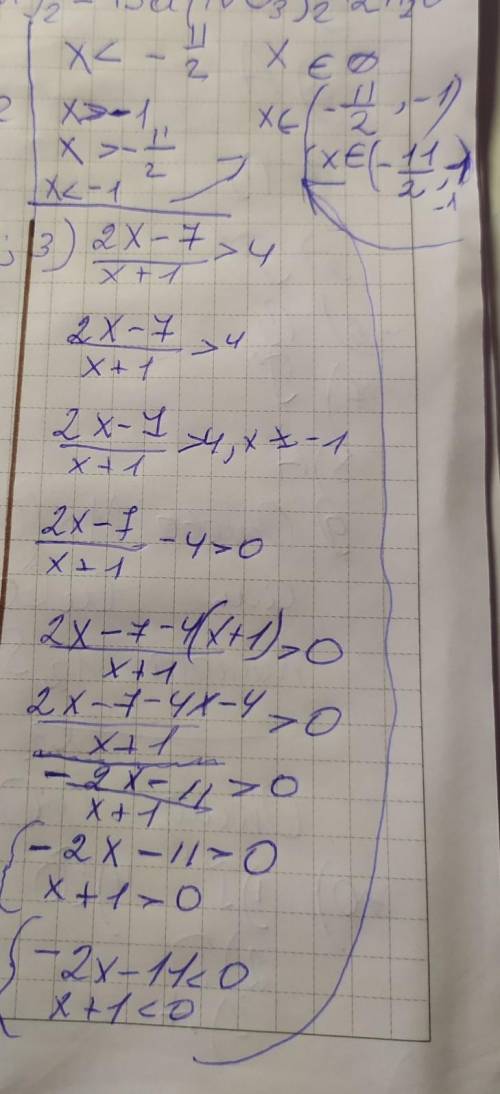 x < - 11/2 x ∈ ∅
x > -1 x ∈ (- 11/2 , -1)
x > - 11/2 x ∈ (- 11/2 , -1
x < -1 -1
3) (2x - 7)/(x + 1) > 4
(2x - 7)/(x + 1) > 4
(2x - 7)/(x + 1) > 4, x ≠ -1
(2x - 7)/(x + 1) - 4 > 0
(2x - 7 - 4(x + 1))/(x + 1) > 0
(2x - 7 - 4x - 4)/(x + 1) > 0
(-2x - 11)/(x + 1) > 0
{ -2x - 11 > 0
x + 1 > 0
{ -2x - 11 < 0
x + 1 < 0